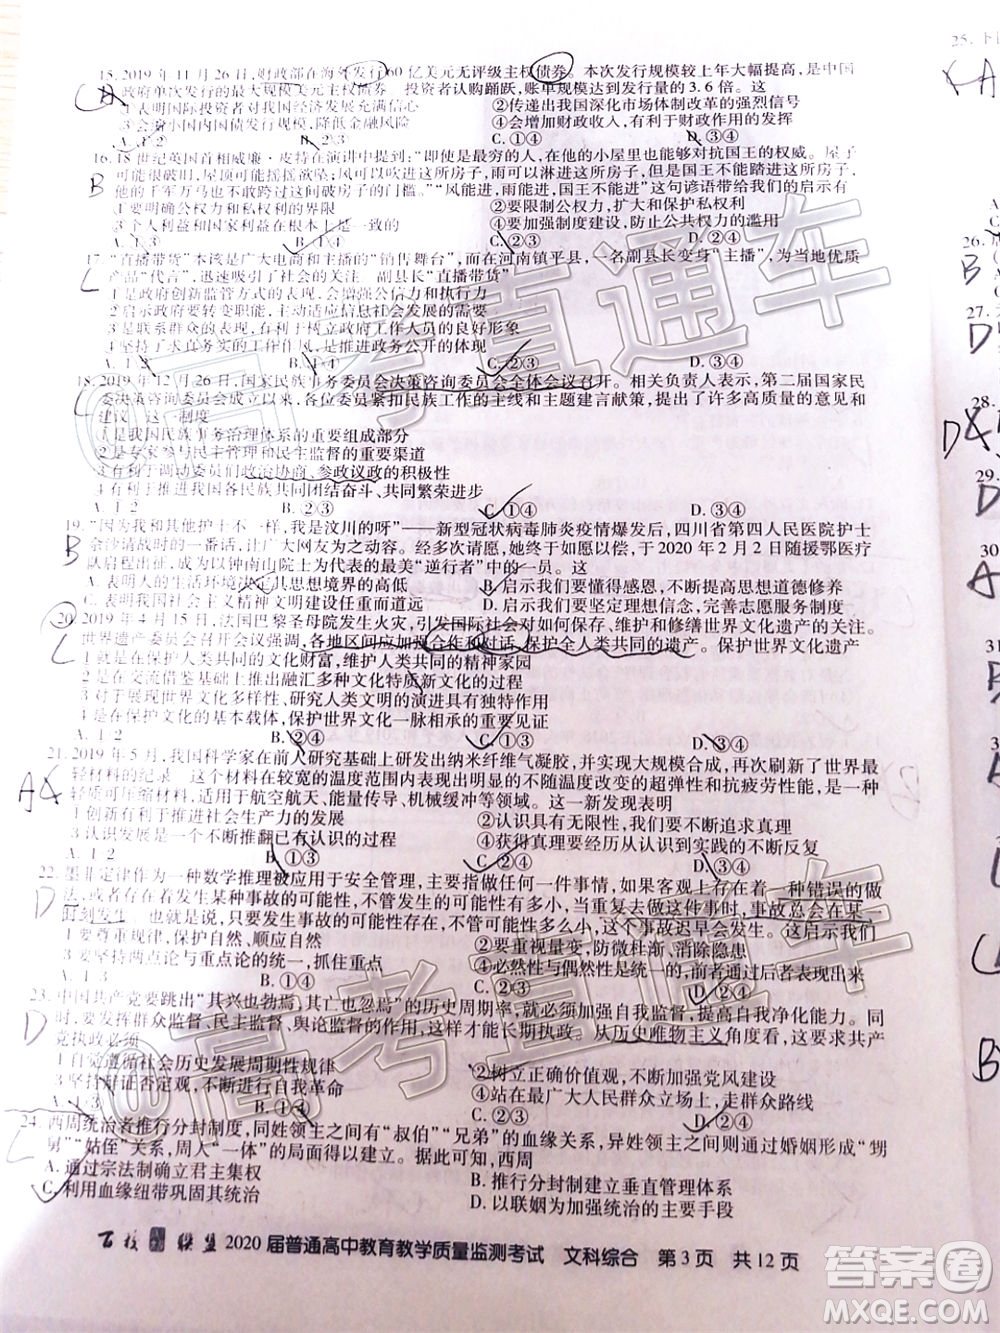 15. 2019 年 11 月 26 日,财政部在海外发行 60 亿美元无评级主权债券。本次发行规模较上年大幅提高,是中国
政府单次发行的最大规模美元主权债券。投资者认购踊跃,账单规模达到发行量的 3.6 倍。这
①表明国际投资者对我国经济发展充满信心 ②传递出我国深化市场体制改革的强烈信号
③会缩小国内国债发行规模,降低金融风险 ④会增加财政收入,有利于财政作用的发挥
A. ①② B. ②③ C. ①④ D. ③④
16. 18 世纪英国首相威廉·皮特在演讲中提到:“即使是最穷的人,在他的小屋里也能够对抗国王的权威。屋子
可能很破旧,屋顶可能摇摇欲坠;风可以吹进这所房子,雨可以淋进这所房子,但是国王不能踏进这所房子,
他的千军万马也不敢跨过这间破房子的门槛。”“风能进,雨能进,国王不能进”这句谚语带给我们的启示有
①要明确公权力和私权利的界限 ②要限制公权力,扩大和保护私权利
③个人利益和国家利益在根本上是一致的 ④要加强制度建设,防止公共权力的滥用
A. ①③ B. ①④ C. ②③ D. ②④
17. “直播带货”本该是广大电商和主播的“销售舞台”,而在河南镇平县,一名副县长变身“主播”,为当地优质
产品“代言”,迅速吸引了社会的关注。副县长“直播带货”
①是政府创新监管方式的表现,会增强公信力和执行力
②启示政府要转变职能,主动适应信息社会发展的需要
③是联系群众的表现,有利于树立政府工作人员的良好形象
④坚持了求真务实的工作作风,是推进政务公开的体现
A. ①② B. ①④ C. ②③ D. ③④
18. 2019 年 12 月 26 日,国家民族事务委员会决策咨询委员会全体会议召开。相关负责人表示,第二届国家民
委决策咨询委员会成立以来,各位委员紧扣民族工作的主线和主题建言献策,提出了许多高质量的意见和
建议。这一制度
①是我国民族事务治理体系的重要组成部分
②是专家参与民主管理和民主监督的重要渠道
③有利于调动委员们政治协商、参政议政的积极性
④有利于推进我国各民族共同团结奋斗、共同繁荣进步
A. ①② B. ②③ C. ①④ D. ③④
19. “因为我和其他护士不一样,我是汶川的呀”——新型冠状病毒肺炎疫情爆发后,四川省第四人民医院护士
佘沙请战时的一番话,让广大网友为之动容。经多次请愿,她终于如愿以偿,于 2020 年 2 月 2 日随援鄂医疗
队启程出征,成为以钟南山院士为代表的最美“逆行者”中的一员。这
A. 表明人的生活环境决定其思想境界的高低 B. 启示我们要懂得感恩,不断提高思想道德修养
C. 表明我国社会主义精神文明建设任重而道远 D. 启示我们要坚定理想信念,完善志愿服务制度
20. 2019 年 4 月 15 日,法国巴黎圣母院发生火灾,引发国际社会对如何保存、维护和修缮世界文化遗产的关注。
世界遗产委员会召开会议强调,各地区间应加强合作和对话,保护全人类共同的遗产。保护世界文化遗产
①就是在保护人类共同的文化财富,维护人类共同的精神家园
②是在交流借鉴基础上推出融汇多种文化特质新文化的过程
③对于展现世界文化多样性,研究人类文明的演进具有独特作用
④是在保护文化的基本载体,保护世界文化一脉相承的重要见证
A. ①② B. ②④ C. ①③ D. ③④
21. 2019 年 5 月,我国科学家在前人研究基础上研发出纳米纤维气凝胶,并实现大规模合成,再次刷新了世界最
轻材料的纪录。这个材料在较宽的温度范围内表现出明显的不随温度改变的超弹性和抗疲劳性能,是理
想的可压缩材料,适用于航空航天、能量传导、机械缓冲等领域。这一新发现表明
①创新有利于推进社会生产力的发展 ②认识具有无限性,我们要不断追求真理
③认识发展是一个不断推翻已有认识的过程 ④获得真理要不断经历认识到实践的不断循环
A. ①② B. ①③ C. ②④ D. ③④
22. 墨非定律作为一种数学推理被应用于安全管理,主要是指:做任何一件事情,如果客观上存在着一种错误的做
法,或者存在着发生某种事故的可能性,不管发生的可能性有多小,当重复去做这件事时,事故总会在某一
时刻发生。也就是说,只要发生事故的可能性存在,不管可能性多么小,这个事故迟早会发生。这启示我们
①要尊重规律,保护自然、顺应自然 ②要重视量变,防微杜渐、消除隐患
③要坚持两点论与重点论的统一,抓住重点 ④必然性与偶然性有联系,做事情应瞻前顾后
A. ①③ B. ①④ C. ②③ D. ②④
23. 中国共产党要跳出“其兴也勃焉,其亡也忽焉”的历史周期率,就必须加强自我革命,增强自我净化能力。同
时,要发挥群众监督、民主监督、舆论监督的作用,这样才能长期执政。从历史唯物主义角度看,要求共产
党执政必须
①自觉遵循社会历史发展周期性规律 ②树立正确价值观,不断加强党风建设
③坚持辩证否定观,不断进行自我革命 ④站在最广大人民群众立场,走群众路线
A. ①③ B. ①④ C. ②③ D. ②④
24. 西周统治者推行分封制度,同姓领主之间存在“叔伯”“兄弟”的血缘关系,异姓领主之间则通过婚姻形成“甥
舅”“姑侄”关系,周人“一体”的局面得以建立。据此可知,西周
A. 通过宗法制确立君主集权 B. 推行分封制建立垂直管理体系
C. 利用血缘纽带巩固其统治 D. 以联姻为主要方式扩大统治
百校联盟 2020 届普通高中教育教学质量监测考试 文科综合 第 3 页 共 12 页
A
B
L
L
B
L
A
D
D
L
25.
A
26.
B
27.
D
28.
D
29.
D
30
A
31
B
B
@高考直通车
@高考直通车
答案圈
MXQE.COM